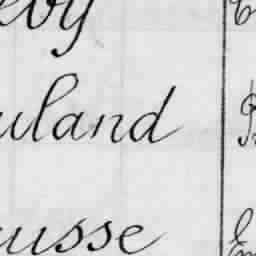 eby
uland
usse